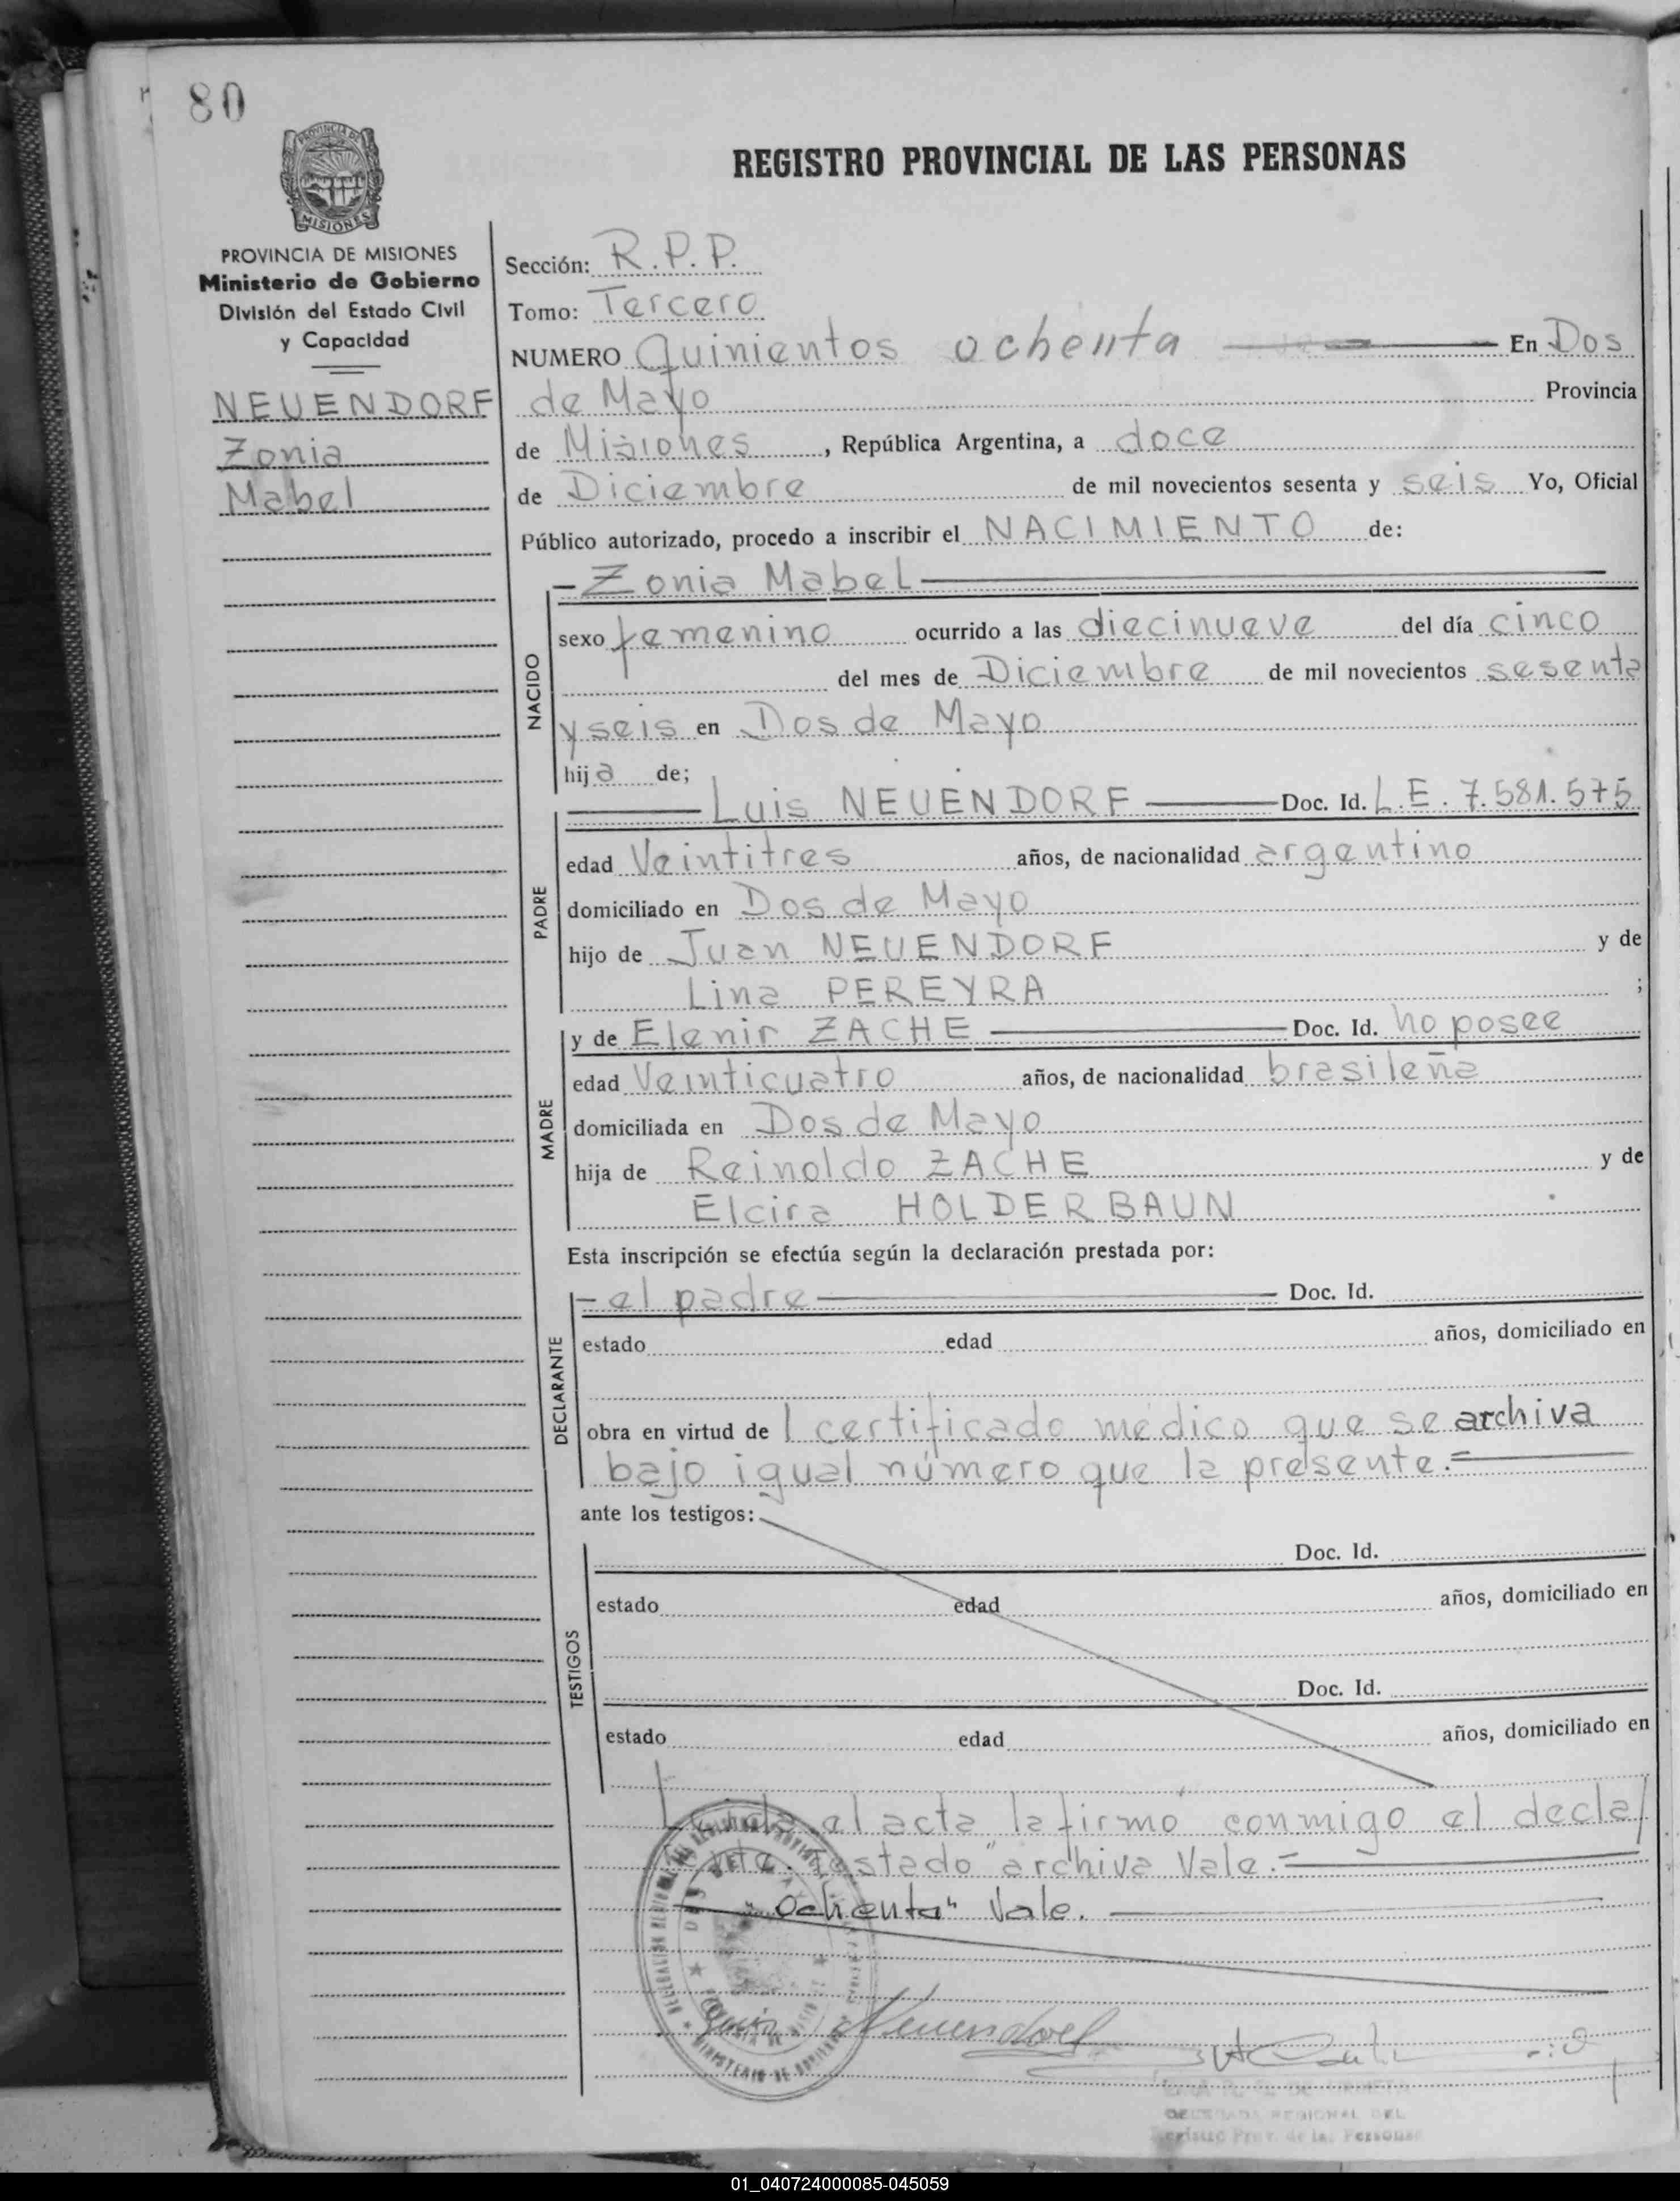 80
PROVINCIA DE
MISIONES
REGISTRO PROVINCIAL DE LAS PERSONAS
PROVINCIA DE MISIONES
Ministerio de Gobierno
División del Estado Civil
y Capacidad
NEUENDORF
Zonia
Mabel
Sección: R.P.P.
Tomo: Tercero
NUMERO Quinientos ochenta En Dos
de Mayo Provincia
de Misiones, República Argentina, a doce
de Diciembre de mil novecientos sesenta y seis Yo, Oficial
Público autorizado, procedo a inscribir el NACIMIENTO de:
NACIDO
- Zonia Mabel
sexo femenino ocurrido a las diecinueve del día cinco
del mes de Diciembre de mil novecientos sesenta
y seis en Dos de Mayo
hija de;
PADRE
Luis NEUENDORF Doc. Id. L.E. 7.581.575
edad Veintitres años, de nacionalidad argentino
domiciliado en Dos de Mayo
hijo de Juan NEUENDORF y de
Lina PEREYRA ;
MADRE
y de Elenir ZACHE Doc. Id. no posee
edad Veinticuatro años, de nacionalidad brasileña
domiciliada en Dos de Mayo
hija de Reinoldo ZACHE y de
Elcira HOLDERBAUN
Esta inscripción se efectúa según la declaración prestada por:
DECLARANTE
- el padre Doc. Id.
estado edad años, domiciliado en
obra en virtud de 1 certificado médico que se archiva
bajo igual número que la presente.=
ante los testigos:
TESTIGOS
Doc. Id.
estado edad años, domiciliado en
Doc. Id.
estado edad años, domiciliado en
Leida el acta la firmó conmigo el decla
Testado "archiva Vale.=
"ochenta" Vale.
Luis Neuendorf
DELEGADA REGIONAL DEL
Registro Prov. de las Personas
01_040724000085-045059